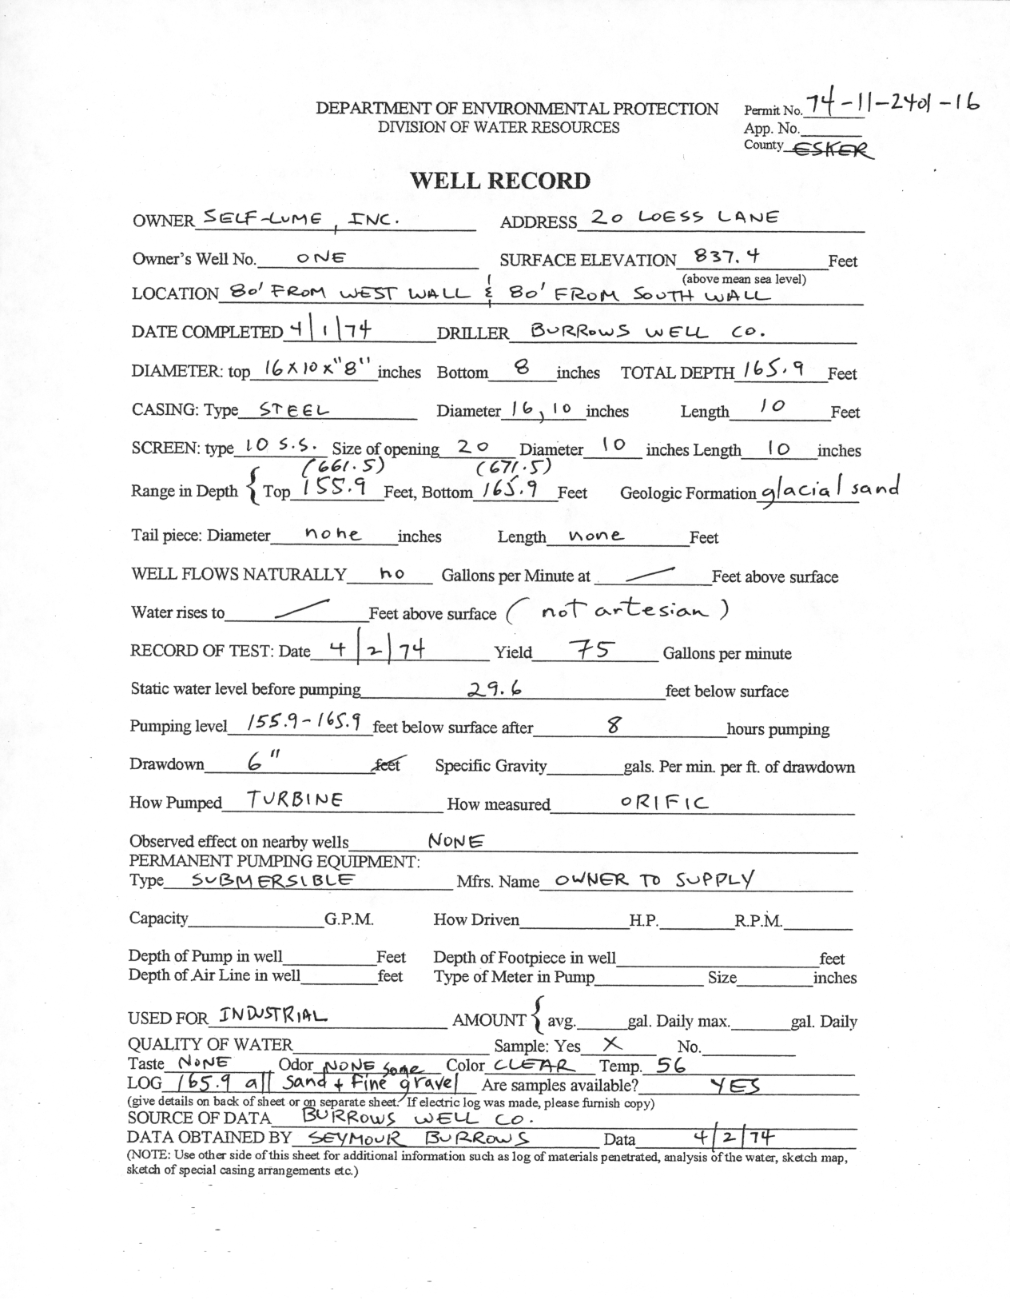 DEPARTMENT OF ENVIRONMENTAL PROTECTION
DIVISION OF WATER RESOURCES
Permit No. 74-11-2401-16
App. No.
County ESKER
WELL RECORD
OWNER SELF-LUME, INC. ADDRESS 20 LOESS LANE
Owner's Well No. ONE SURFACE ELEVATION 837.4 Feet
(above mean sea level)
LOCATION 80' FROM WEST WALL & 80' FROM SOUTH WALL
DATE COMPLETED 4/1/74 DRILLER BURROWS WELL CO.
DIAMETER: top 16 X 10 x "8" inches Bottom 8 inches TOTAL DEPTH 165.9 Feet
CASING: Type STEEL Diameter 16, 10 inches Length 10 Feet
SCREEN: type 10 S.S. Size of opening 20 Diameter 10 inches Length 10 inches
(661.5) (671.5)
Range in Depth { Top 155.9 Feet, Bottom 165.9 Feet Geologic Formation glacial sand
Tail piece: Diameter none inches Length none Feet
WELL FLOWS NATURALLY no Gallons per Minute at — Feet above surface
Water rises to — Feet above surface (not artesian)
RECORD OF TEST: Date 4/2/74 Yield 75 Gallons per minute
Static water level before pumping 29.6 feet below surface
Pumping level 155.9-165.9 feet below surface after 8 hours pumping
Drawdown 6" feet Specific Gravity gals. Per min. per ft. of drawdown
How Pumped TURBINE How measured ORIFIC
Observed effect on nearby wells NONE
PERMANENT PUMPING EQUIPMENT:
Type SUBMERSIBLE Mfrs. Name OWNER TO SUPPLY
Capacity G.P.M. How Driven H.P. R.P.M.
Depth of Pump in well Feet Depth of Footpiece in well feet
Depth of Air Line in well feet Type of Meter in Pump Size inches
USED FOR INDUSTRIAL AMOUNT { avg. gal. Daily max. gal. Daily
QUALITY OF WATER Sample: Yes X No.
Taste NONE Odor NONE some Color CLEAR Temp. 56
LOG 165.9 all Sand + fine gravel Are samples available? YES
(give details on back of sheet or on separate sheet. If electric log was made, please furnish copy)
SOURCE OF DATA BURROWS WELL CO.
DATA OBTAINED BY SEYMOUR BURROWS Data 4/2/74
(NOTE: Use other side of this sheet for additional information such as log of materials penetrated, analysis of the water, sketch map,
sketch of special casing arrangements etc.)